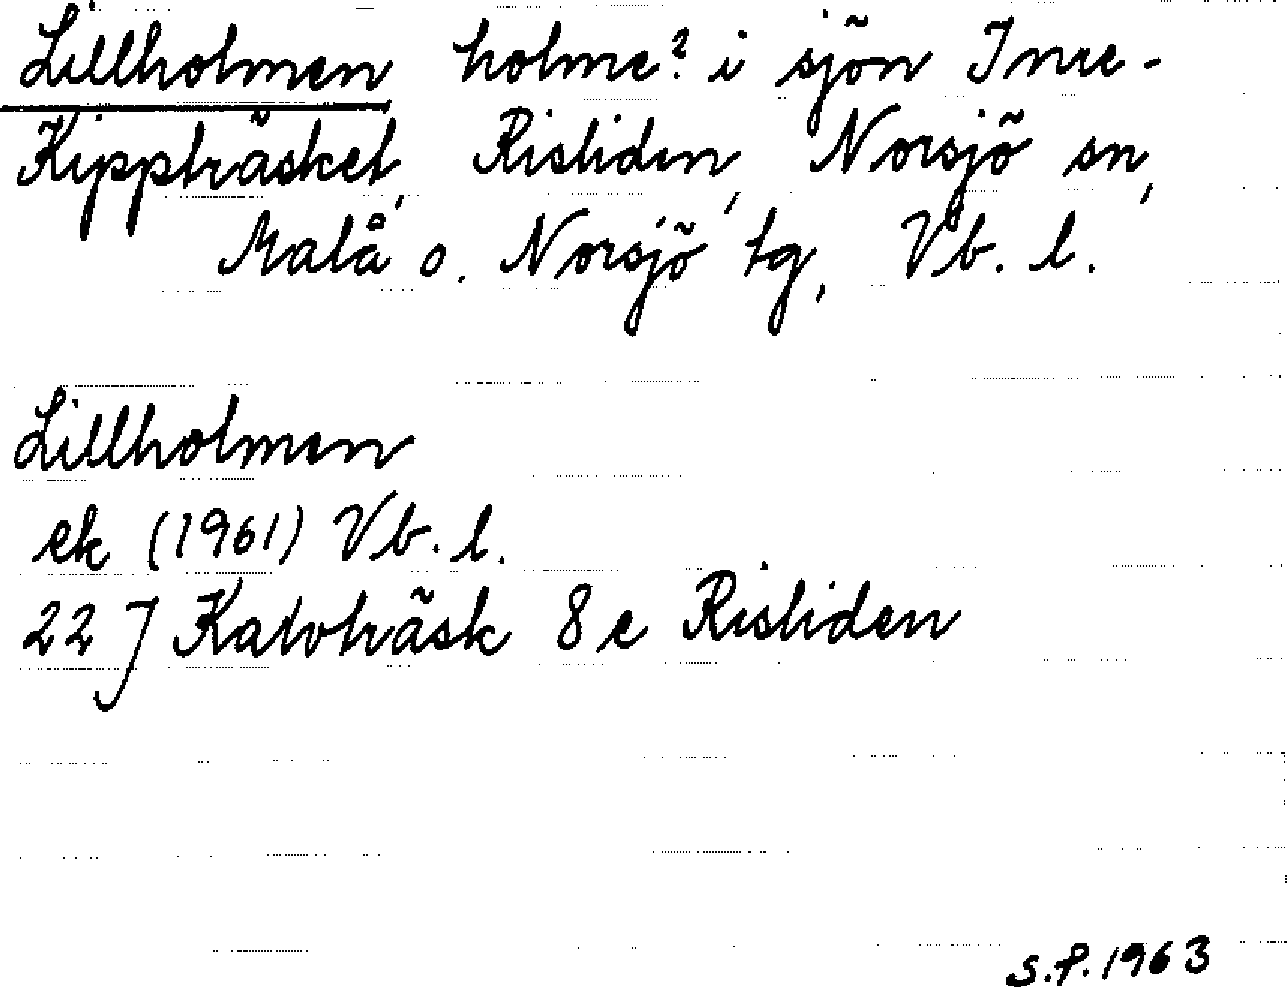 Lillholmen holme? i sjön Inre-
Kippträsket, Risliden, Norsjö sn,
Malå o. Norsjö tg, Vb. l.
Lillholmen
ek (1961) Vb. l.
22 J Kalvträsk 8 e Risliden
S.P. 1963